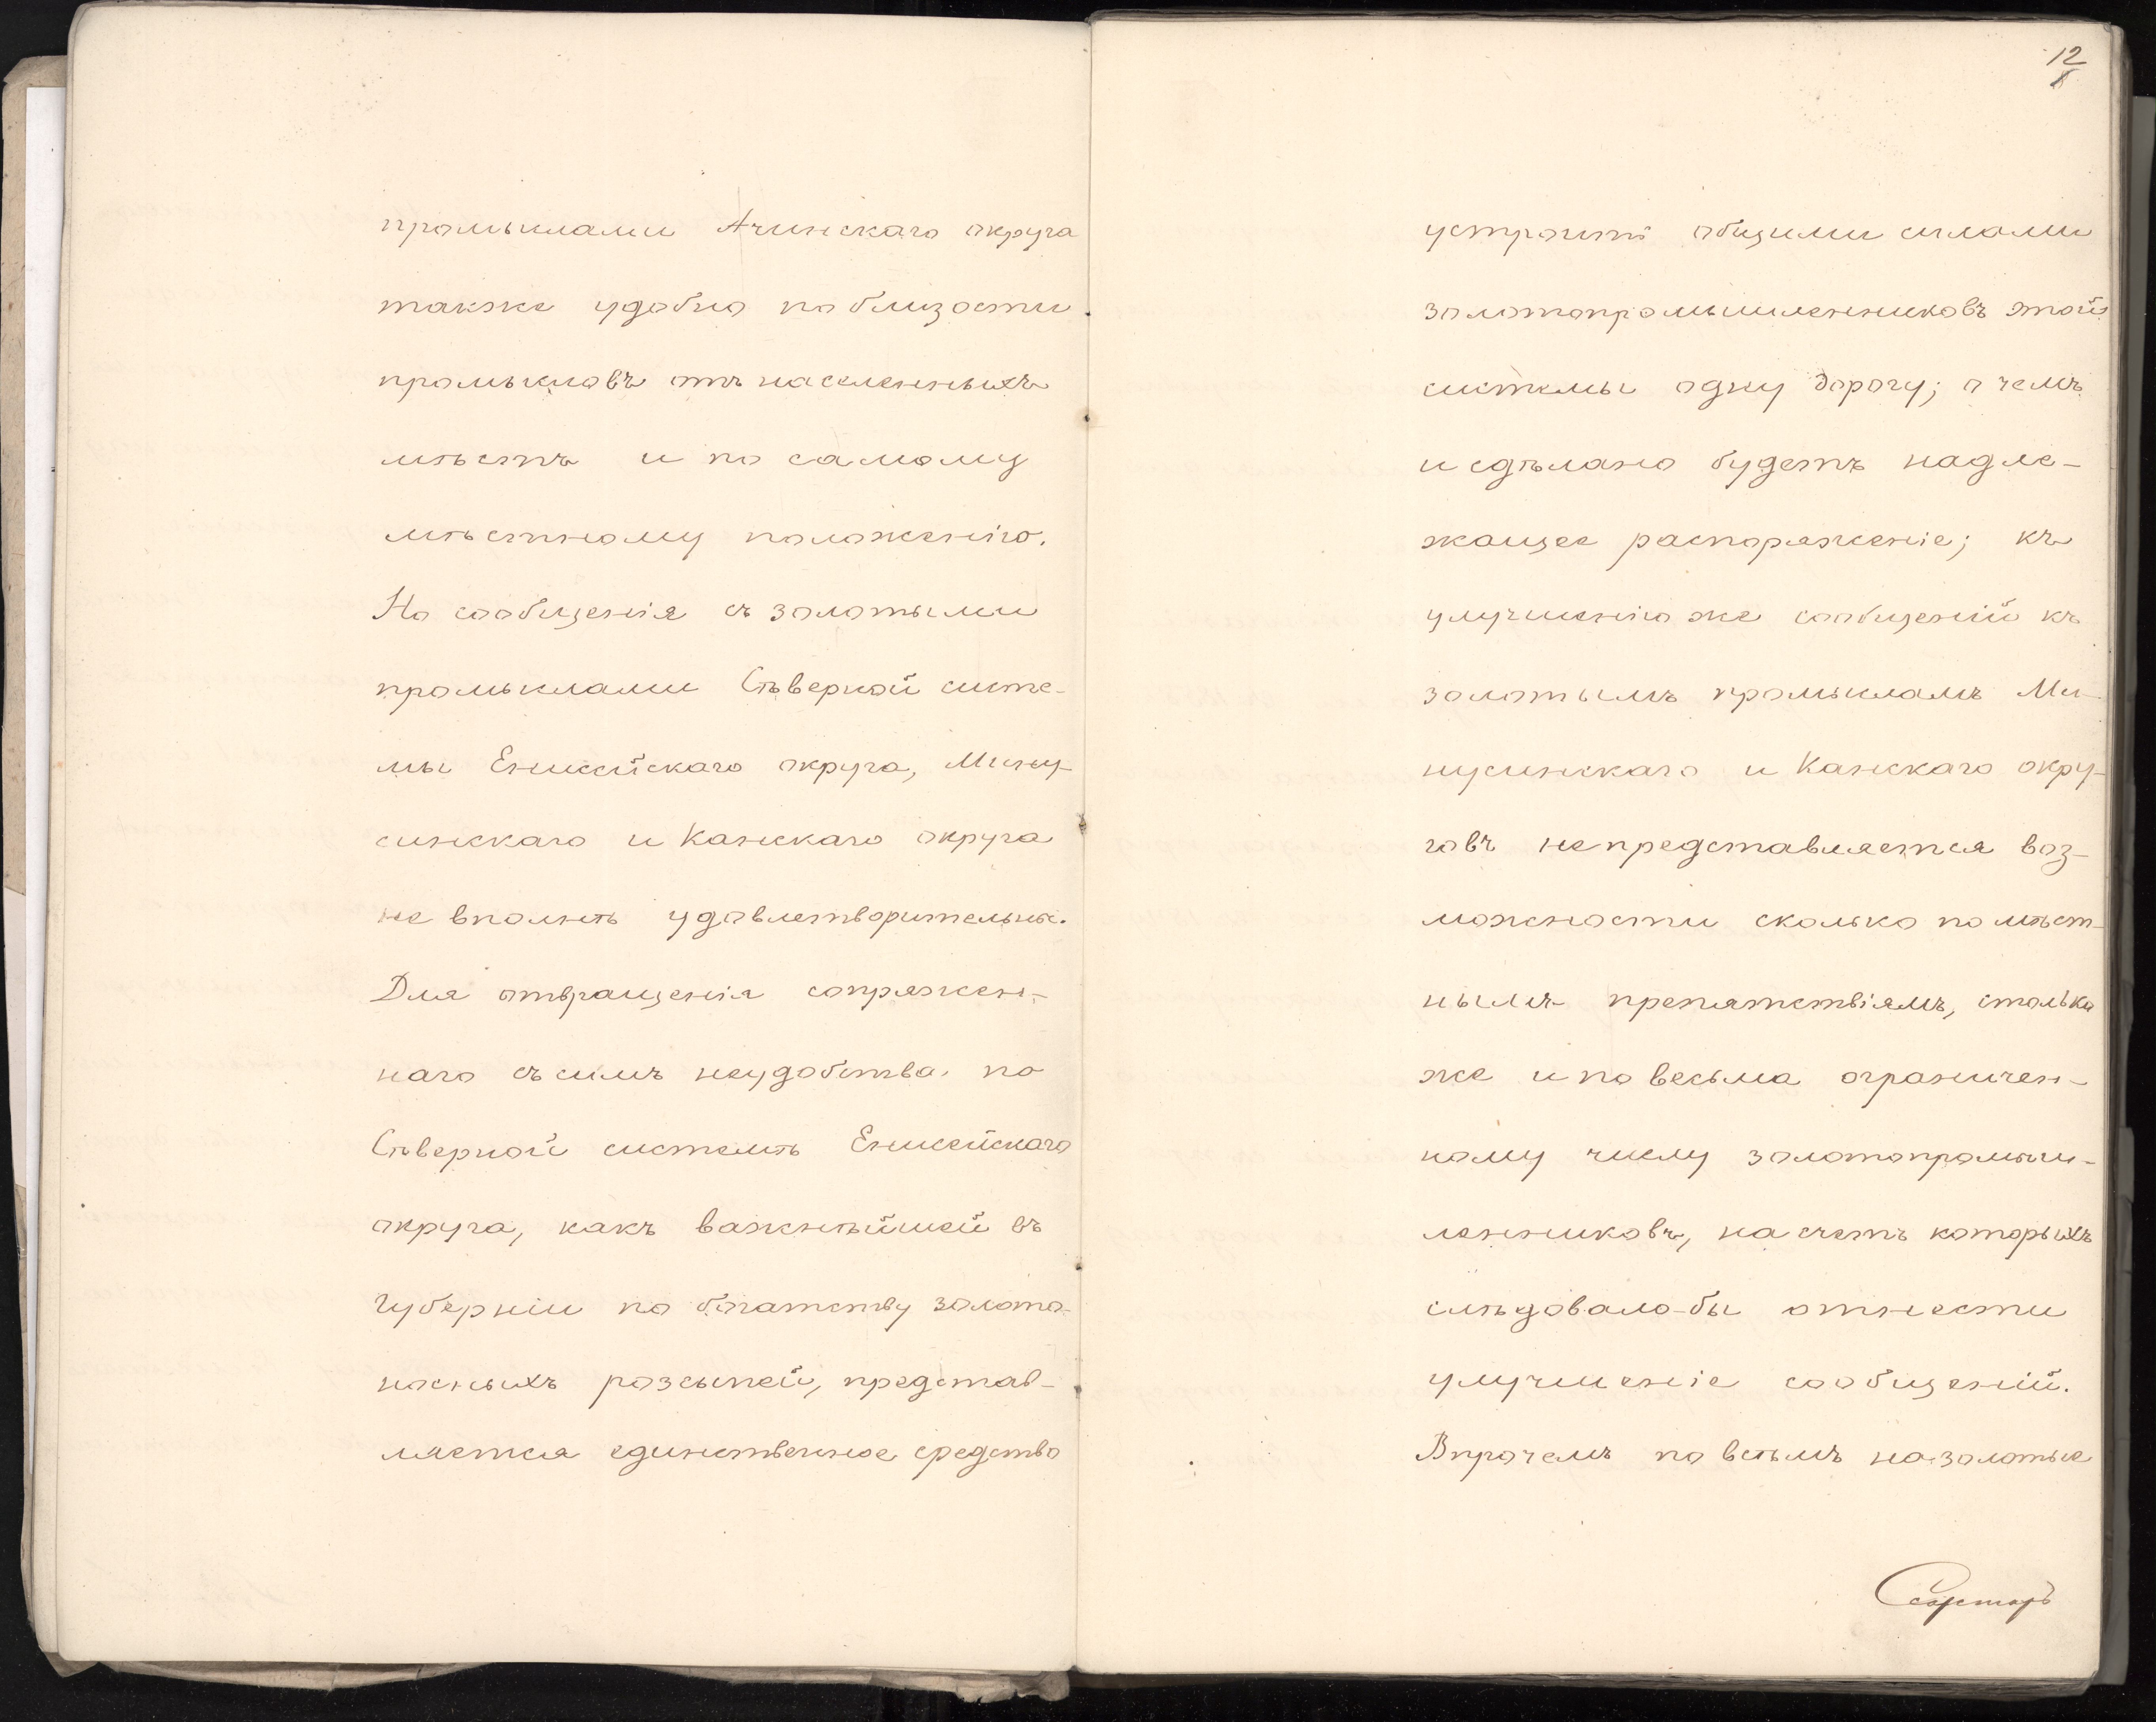 промыслами Ачинскаго округа
также удобно по близости
промысловъ отъ населенныхъ
мѣстъ и по самому
мѣстному положенію.
Но сообщенія съ золотыми
промыслами Сѣверной систе-
мы Енисейскаго округа, Мину-
синскаго и Канскаго округа
не вполнѣ удовлетворительны.
Для отвращенія сопряжен-
наго съ симъ неудобства, по
Сѣверной системѣ Енисейскаго
округа, какъ важнѣйшей въ
Губерніи по богатству золото-
носныхъ розсыпей, представ-
ляется единственное средство
12
устроить общими силами
золотопромышленниковъ этой
системы одну дорогу; о чемъ
и сдѣлано будетъ надле-
жащее распоряженіе; къ
улучшенію же сообщеній къ
золотымъ промысламъ Ми-
нусинскаго и Канскаго окру-
говъ не представляется воз-
можности сколько по мѣст-
нымъ препятствіямъ, столько
же и по весьма ограничен-
ному числу золотопромыш-
ленниковъ, на счетъ которыхъ
слѣдовало-бы отнести
улучшеніе сообщеній.
Впрочемъ по всѣмъ на золотые